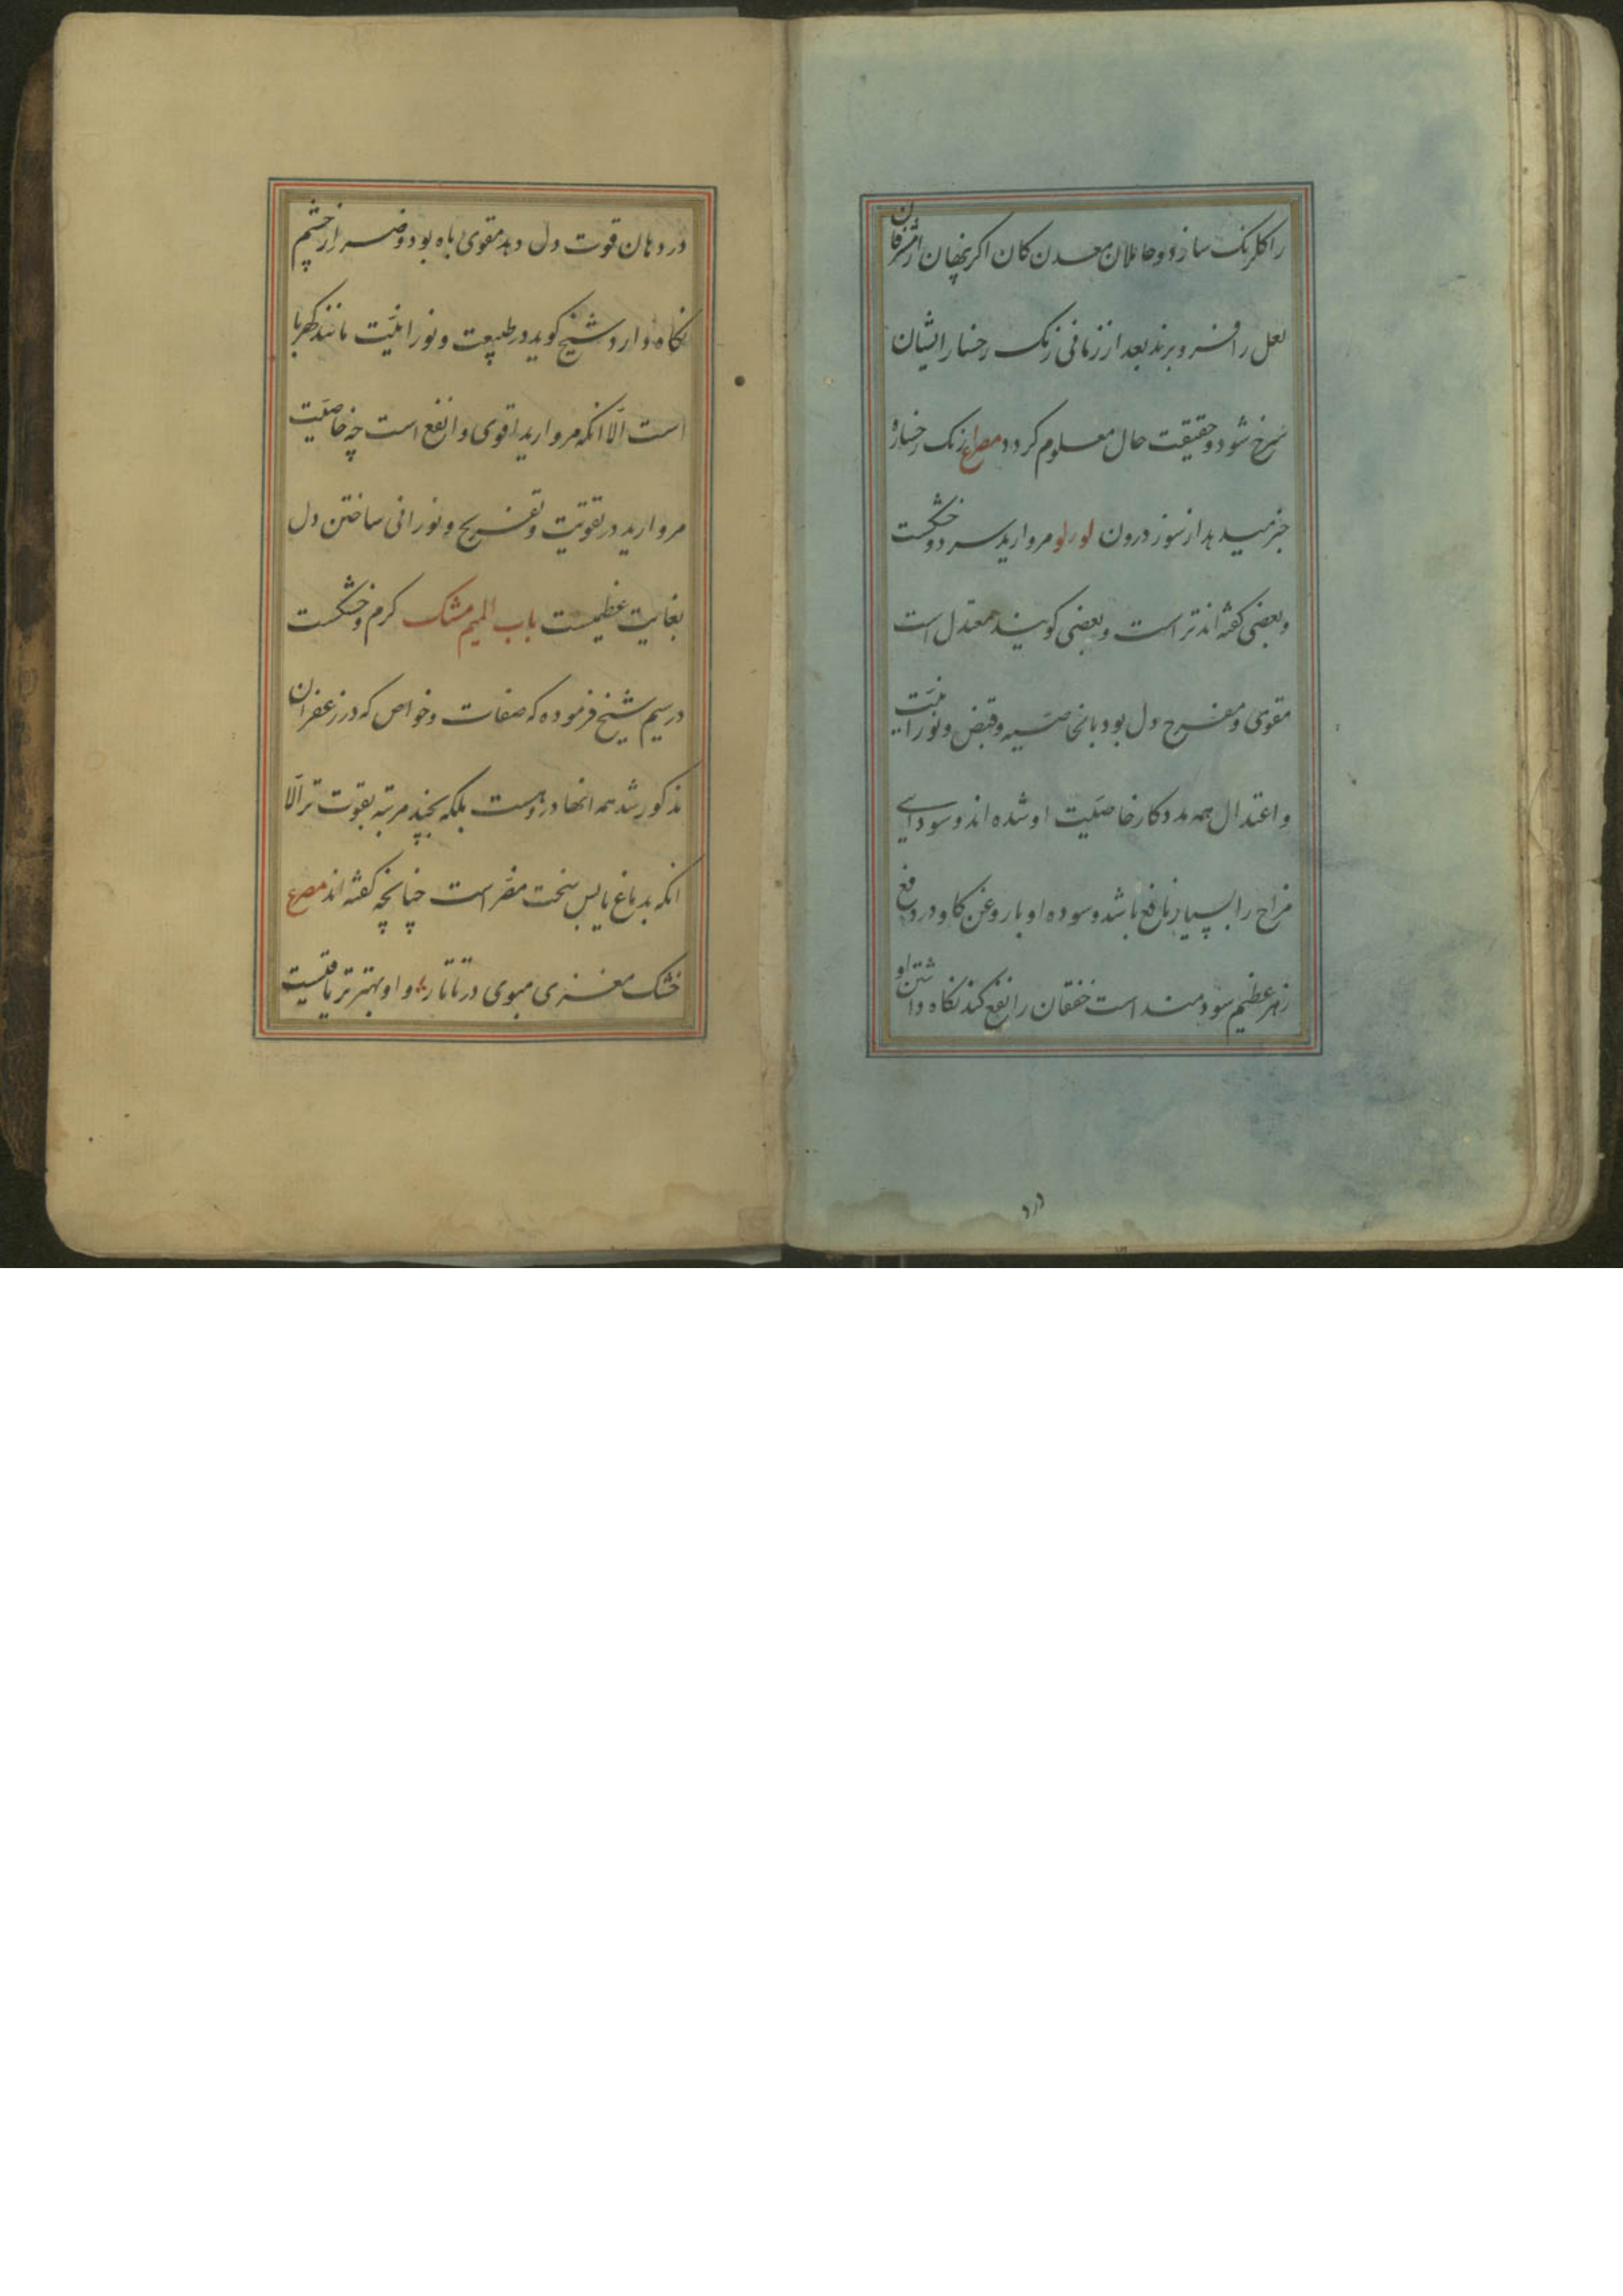 را کلرنک سازد و حاملان معدن کان اکر پنهان از مشرفان
لعل را فرو برند بعد از زمانی رنک رخسار ایشان
سرخ شود و حقیقت حال معلوم کردد مصراع رنک رخساره
خبر میدهد از سوز درون لولو مروارید سرد و خشکست
و بعضی کفته اند تر است و بعضی کویند معتدل است
مقوی و مفرح دل بود بالخاصیه و قبض و نورانیت
و اعتدال همه مددکار خاصیت او شده اند و سودایی
مزاج را بسیار نافع باشد و سوده او با روغن کاو در دفع
زهر عظیم سودمند است خفقان را نفع کند نکاه داشتن او
درد
در دهان قوت دل دهد مقوی باه بود و ضرر از چشم
نکاه دارد شیخ کوید در طبیعت و نورانیت مانند کهربا
است الّا انکه مروارید اقوی و انفع است چه خاصیّت
مروارید در تقویت و تفریح و نورانی ساختن دل
بغایت عظیمست باب المیم مشک کرم و خشکست
در سیم شیخ فرموده که صفات و خواص که در زعفران
مذکور شد همه انها در وهست بلکه بچند مرتبه بقوت تر الّا
انکه بدماغ یابس سخت مضر است چنانچه کفته اند مصرع
خشک مغزی مبوی در تاتار و او بهتر تریاقیست